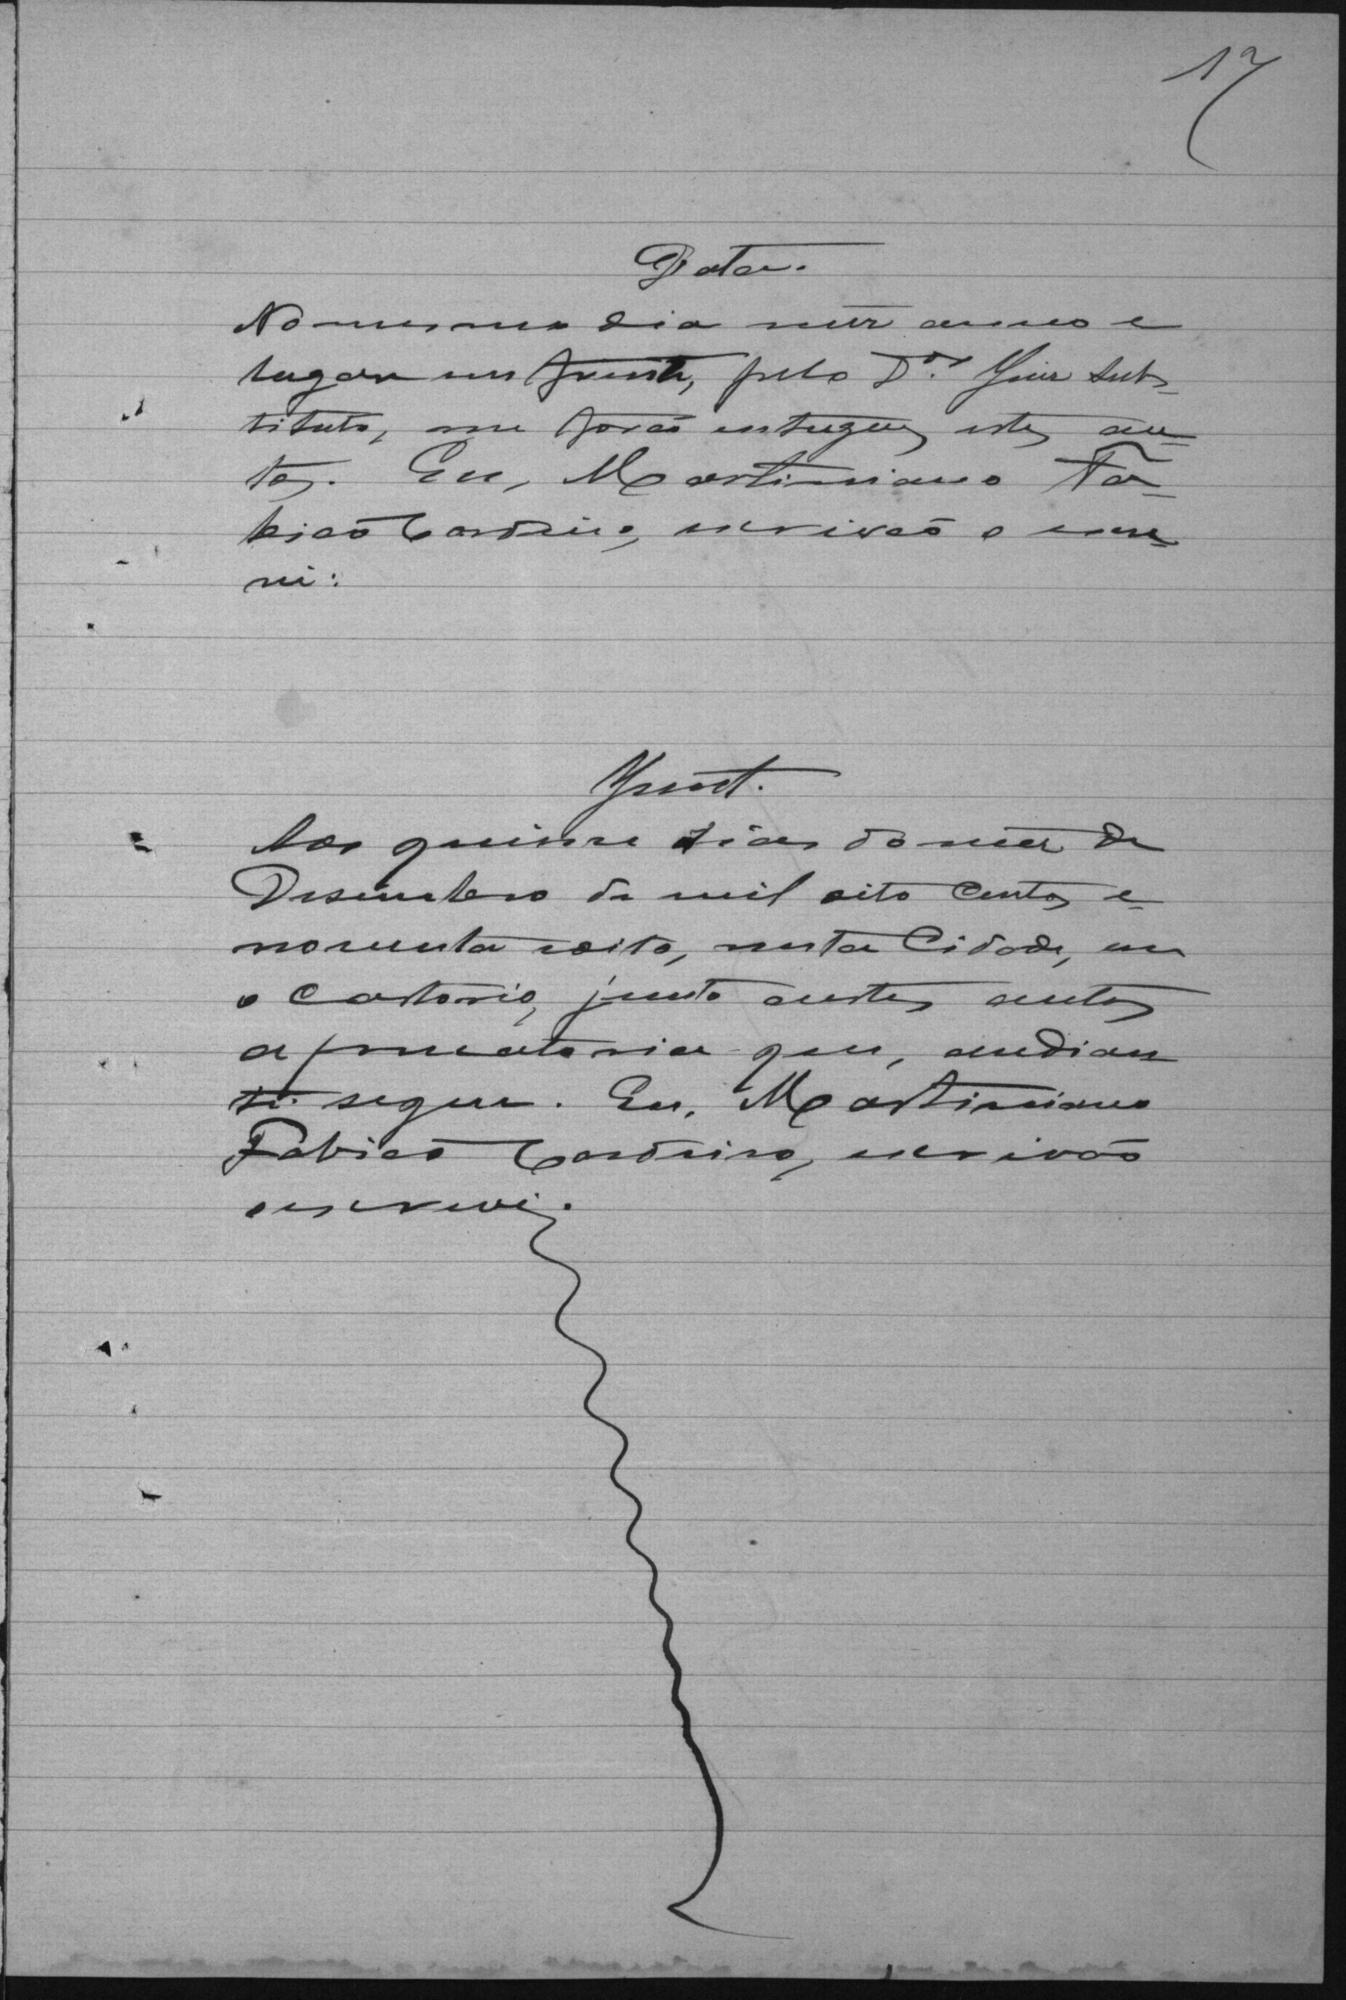 17
Data.
No mesmo dia mez anno e
lugar em frente, pelo D.or Juiz Subs-
tituto, me forão entregues estes au-
tos. Eu, Martimiano Fa-
bião Cordeiro, escrivão o escre-
vi:
Junt.
Aos quinze dias do mez de
Desembro de mil oito centos e
noventa e oito, nesta Cidade, em
o Cartorio, junto a estes autos
a precatoria que, adian
te segue. Eu, Martimiano
Fabião Cordeiro, escrivão
o escrevi.